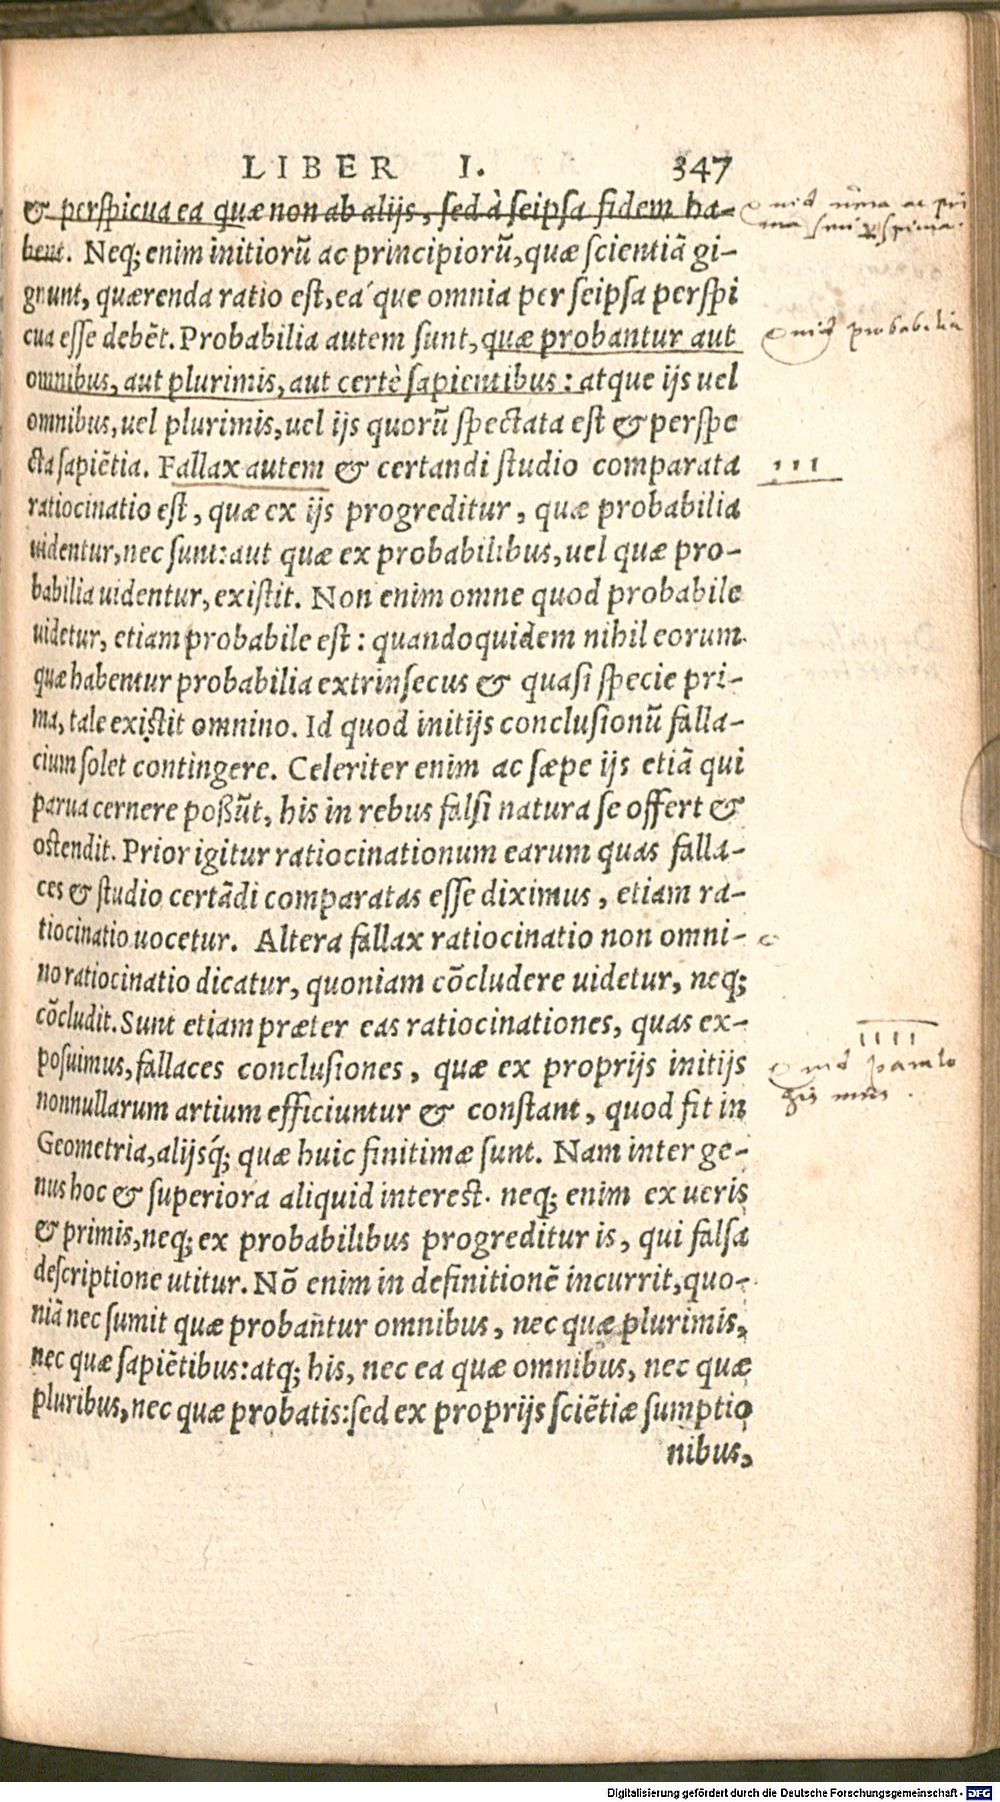 LIBER I. 347
& perspicua ea quæ non ab alijs, sed à seipsa fidem ha-
bent. Neq; enim initiorũ ac principiorũ, quæ scientiã gi-
gnunt, quærenda ratio est, ea´que omnia per seipsa perspi
cua esse debẽt. Probabilia autem sunt, quæ probantur aut
omnibus, aut plurimis, aut certè sapientibus: atque ijs uel
omnibus, uel plurimis, uel ijs quorũ spectata est & perspe
cta sapiẽtia. Fallax autem & certandi studio comparata
ratiocinatio est, quæ ex ijs progreditur, quæ probabilia
uidentur, nec sunt: aut quæ ex probabilibus, uel quæ pro-
babilia uidentur, existit. Non enim omne quod probabile
uidetur, etiam probabile est: quandoquidem nihil eorum
quæ habentur probabilia extrinsecus & quasi specie pri-
ma, tale existit omnino. Id quod initijs conclusionũ falla-
cium solet contingere. Celeriter enim ac sæpe ijs etiã qui
parua cernere poßũt, his in rebus falsi natura se offert &
ostendit. Prior igitur ratiocinationum earum quas falla-
ces & studio certãdi comparatas esse diximus, etiam ra-
tiocinatio uocetur. Altera fallax ratiocinatio non omni-
no ratiocinatio dicatur, quoniam cõcludere uidetur, neq;
cõcludit. Sunt etiam præter eas ratiocinationes, quas ex-
posuimus, fallaces conclusiones, quæ ex proprijs initijs
nonnullarum artium efficiuntur & constant, quod fit in
Geometria, alijsq́; quæ huic finitimæ sunt. Nam inter ge-
nus hoc & superiora aliquid interest. neq; enim ex ueris
& primis, neq; ex probabilibus progreditur is, qui falsa
descriptione utitur. Nõ enim in definitionẽ incurrit, quo-
niã nec sumit quæ probañtur omnibus, nec quæ plurimis,
nec quæ sapiẽtibus: atq; his, nec ea quæ omnibus, nec quæ
pluribus, nec quæ probatis: sed ex proprijs sciẽtiæ sumptio
nibus,
probabilia
III
IIII
paralo
gis mus
Digitalisierung gefördert durch die Deutsche Forschungsgemeinschaft - DFG